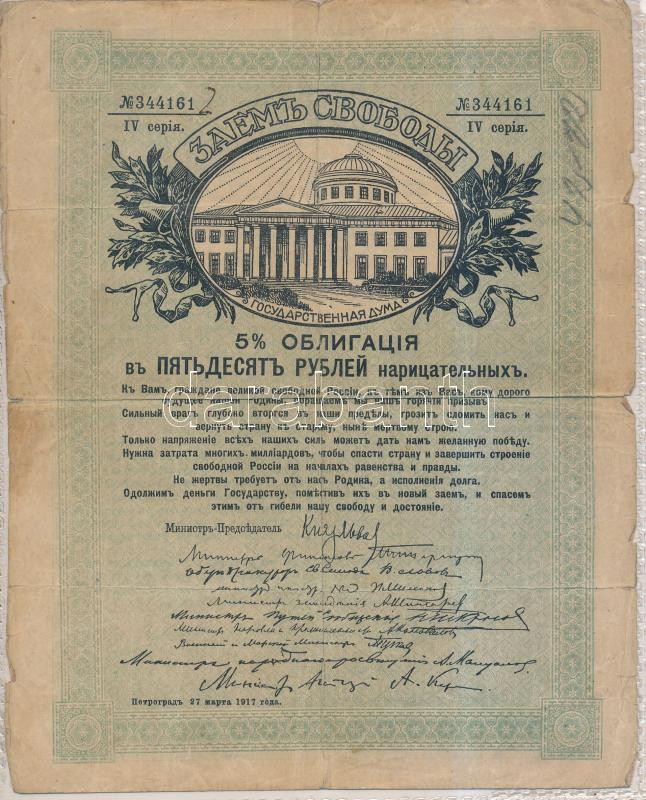 №344161 2
IV серія.
№344161
IV серія.
ЗАЕМЪ СВОБОДЫ
ГОСУДАРСТВЕННАЯ ДУМА
5% ОБЛИГАЦІЯ
въ ПЯТЬДЕСЯТЪ РУБЛЕЙ нарицательныхъ.
Къ Вамъ, граждане великой свободной Россіи, къ тѣмъ изъ Васъ, кому дорого
будущее нашей Родины, обращаемъ мы нашъ горячій призывъ.
Сильный врагъ глубоко вторгся въ наши предѣлы, грозитъ сломить насъ и
вернуть страну къ старому, нынѣ мертвому строю.
Только напряженіе всѣхъ нашихъ силъ можетъ дать намъ желанную побѣду.
Нужна затрата многихъ милліардовъ, чтобы спасти страну и завершить строеніе
свободной Россіи на началахъ равенства и правды.
Не жертвы требуетъ отъ насъ Родина, а исполненія долга.
Одолжимъ деньги Государству, помѣстивъ ихъ въ новый заемъ, и спасемъ
этимъ отъ гибели нашу свободу и достояніе.
darabanth
Министръ-Предсѣдатель Князь Львов
Министръ Финансовъ
Оберъ Прокуроръ Св. Синода В. Львовъ
Министръ земледѣлія А. Шингаревъ
Министръ Путей Сообщенія Н. Некрасовъ
Министръ Торговли и Промышленности А. Коноваловъ
Военный и Морской Министръ А. Гучков
Министръ народнаго просвѣщенія А. Мануйловъ
Министръ Юстиціи А. Кер
Петроградъ 27 марта 1917 года.